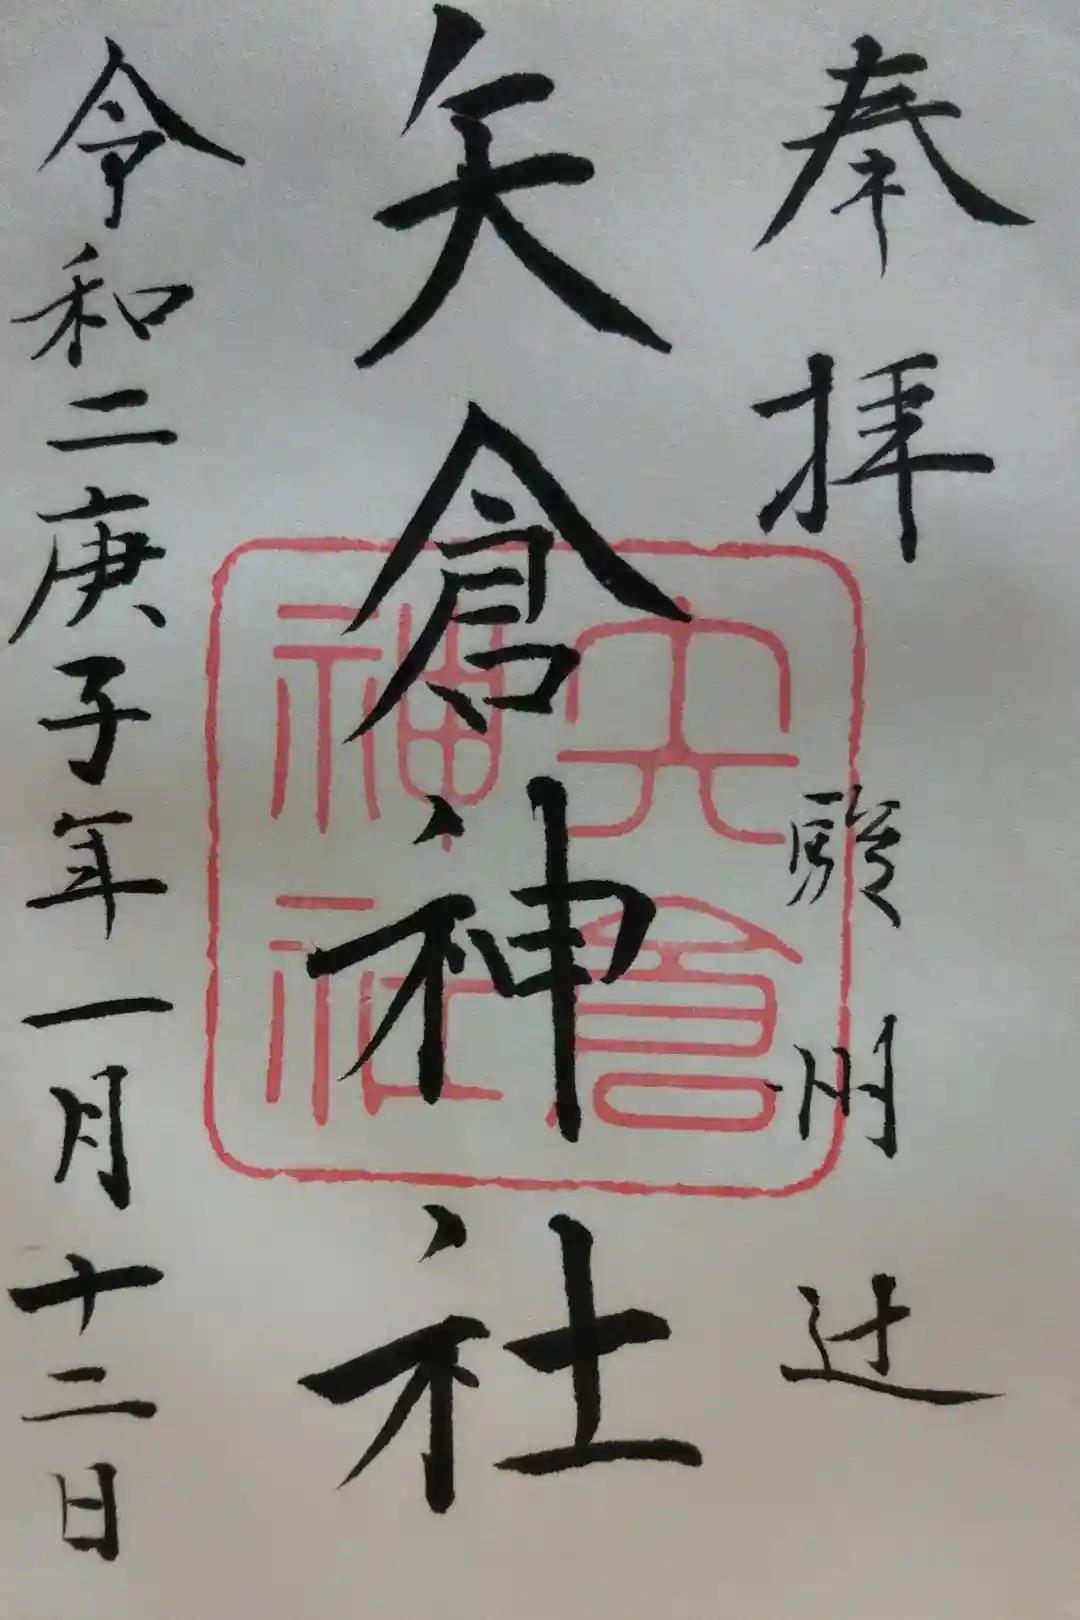 奉拝
駿州辻
矢倉神社
矢倉
神社
令和二庚子年一月十二日